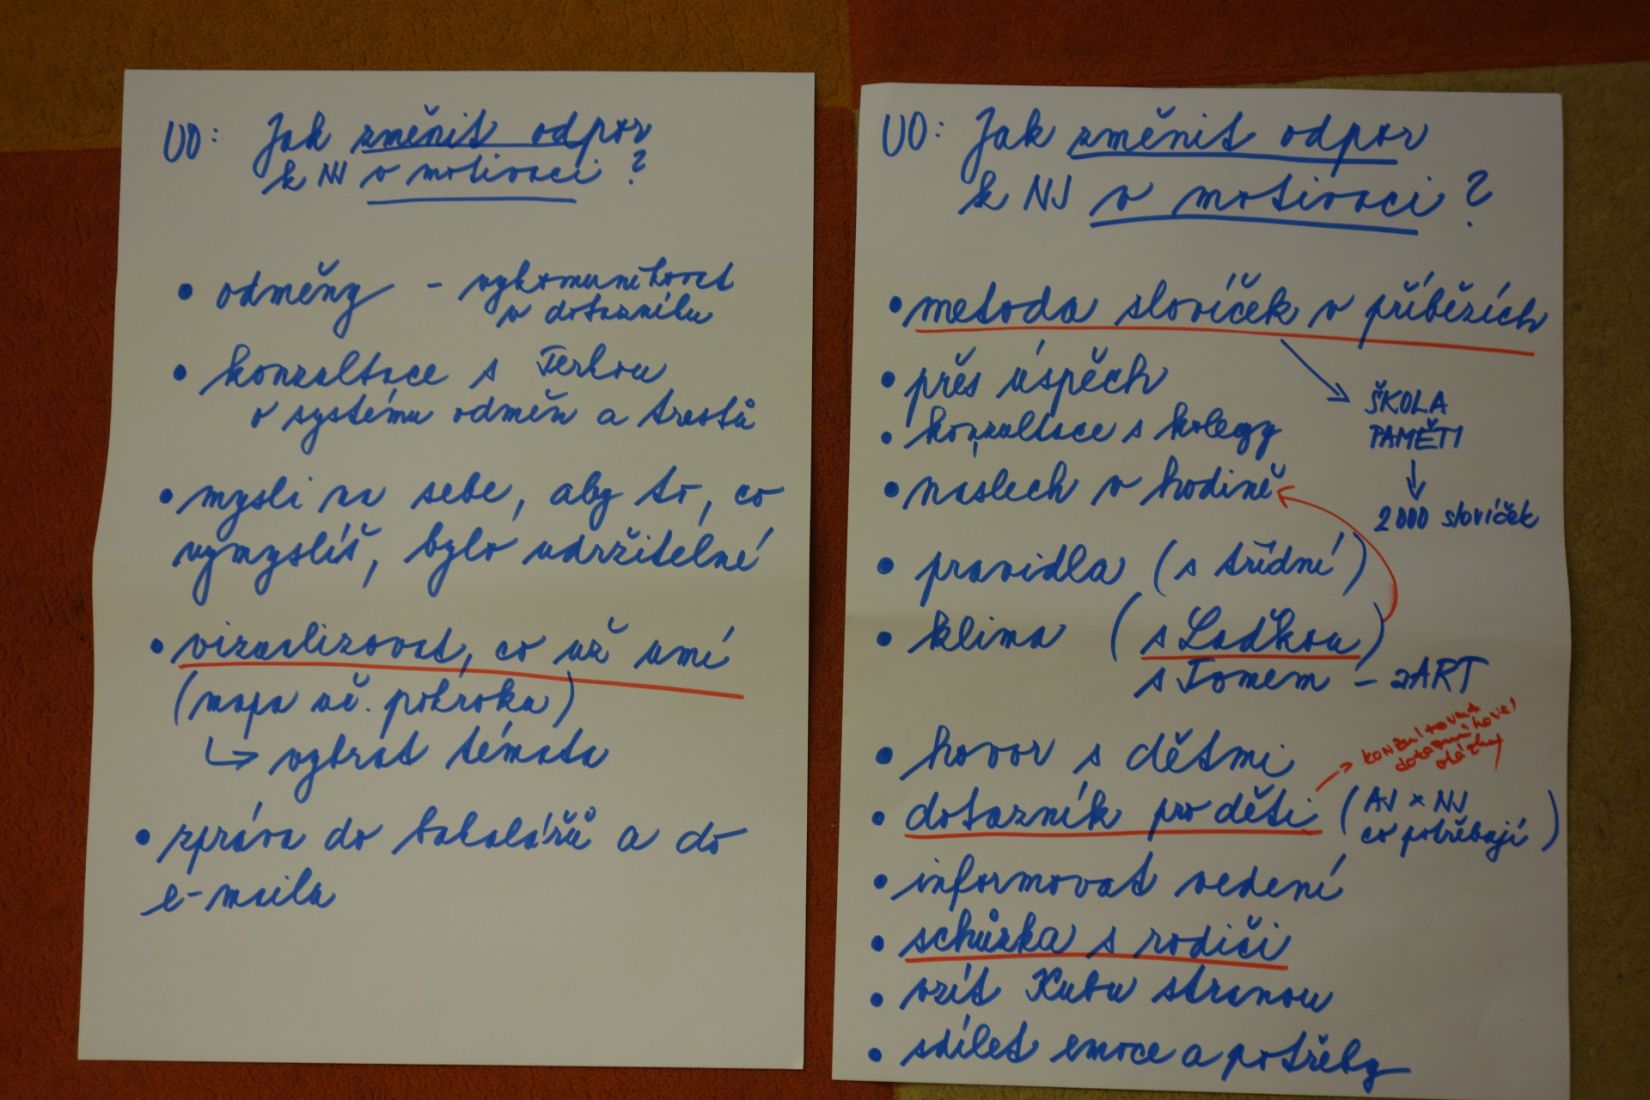 UO: Jak změnit odpor
k NJ v motivaci?
• odměny - vykomunikovat
v dotazníku
• konzultace s Terkou
o systému odměn a trestů
• mysli na sebe, aby to, co
vymyslíš, bylo udržitelné
• vizualizovat, co už umí
(mapa uč. pokroku)
↳ vybrat témata
• zpráva do bakalářů a do
e-mailu
UO: Jak změnit odpor
k NJ v motivaci?
• metoda slovíček v příbězích
• přes úspěch
ŠKOLA
PAMĚTI
• konzultace s kolegy
• náslech v hodině
2000 slovíček
• pravidla (s třídní)
• klima (s Laďkou)
s Tomem - ART
• hovor s dětmi
konzultovat
dotazníkové
otázky
• dotazník pro děti (AJ x NJ
co potřebují)
• informovat vedení
• schůzka s rodiči
• vzít Kubu stranou
• sdílet emoce a potřeby